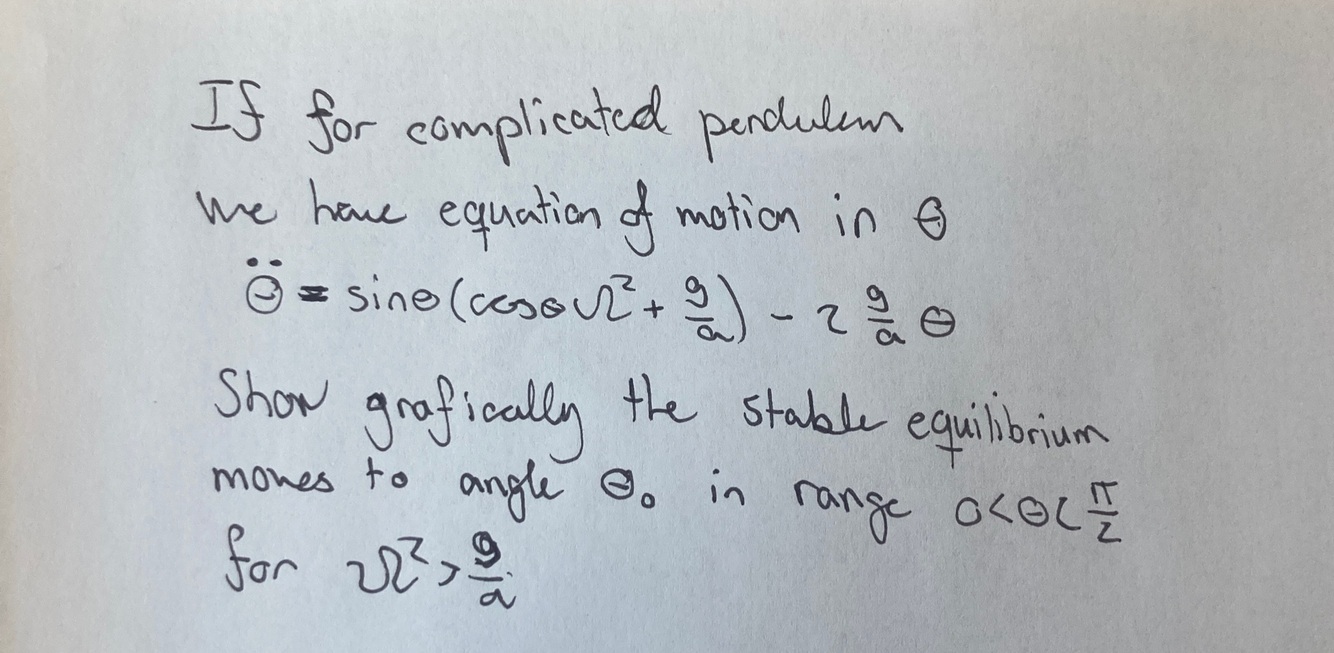 If for complicated pendulum
we have equation of motion in θ
θ̈ = sinθ(cosθΩ² + g/a) - 2 g/a θ
Show grafically the stable equilibrium
moves to angle θ₀ in range 0<θ<π/2
for Ω² > g/a